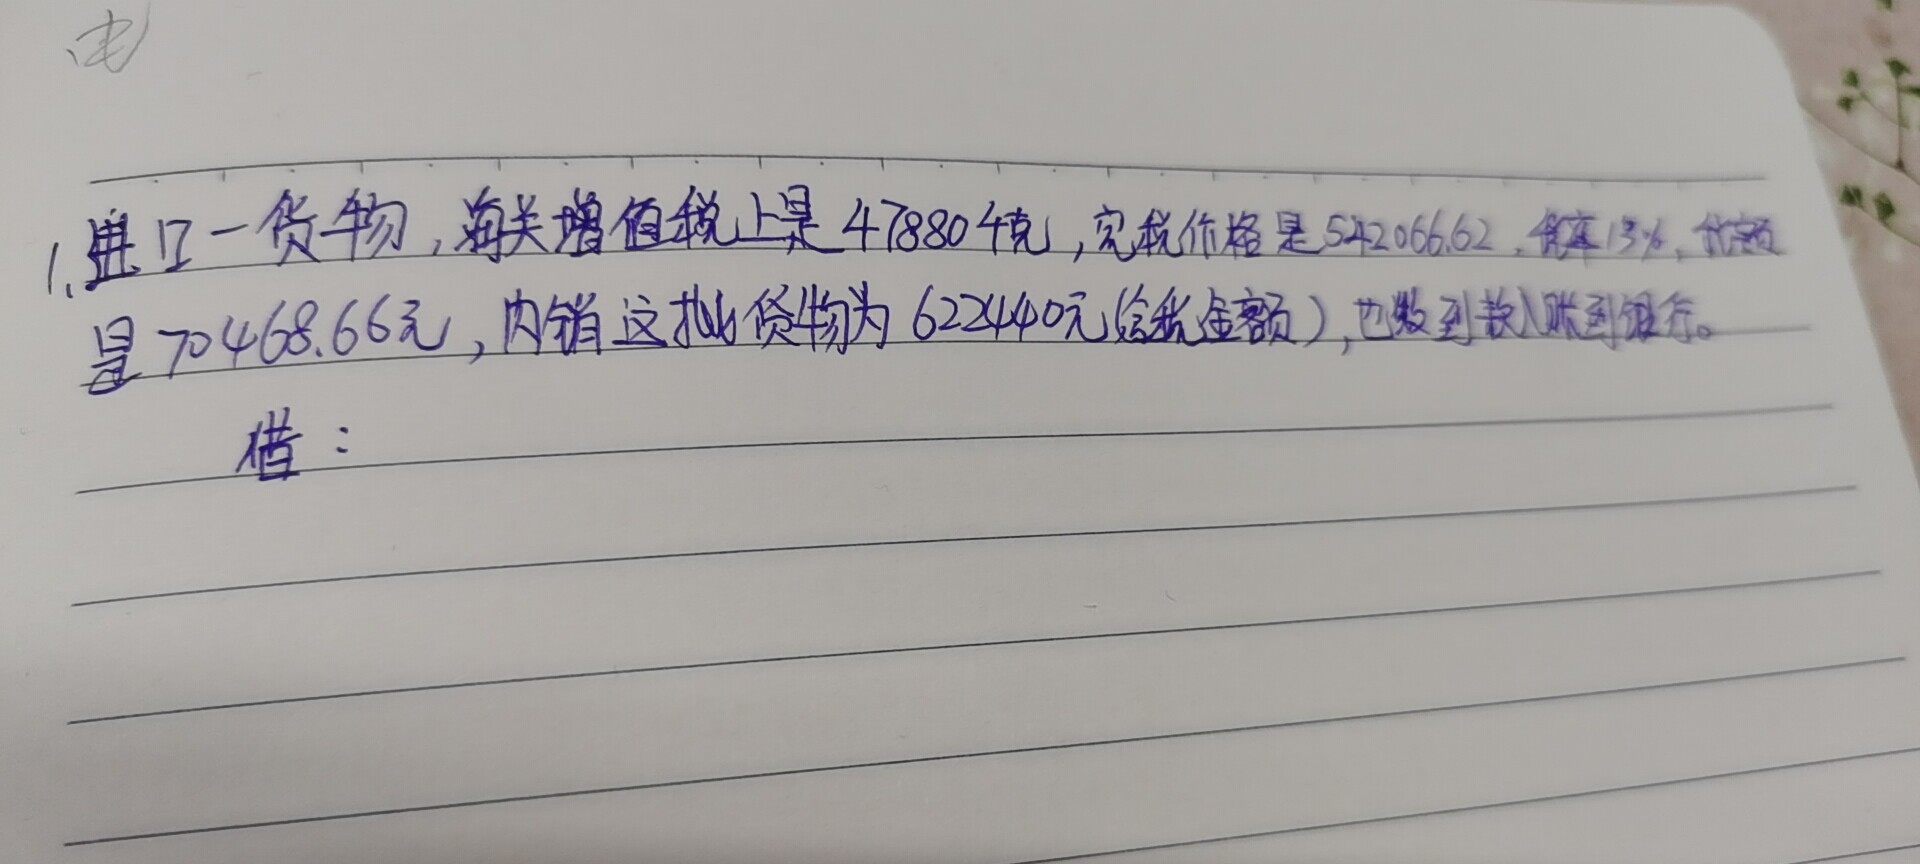 1.进口一货物,海关增值税上是478804克,完税价格是542066.62.税率13%,税额
是70468.66元,内销这批货物为622440元(含税金额),也收到款入账到银行。
借: